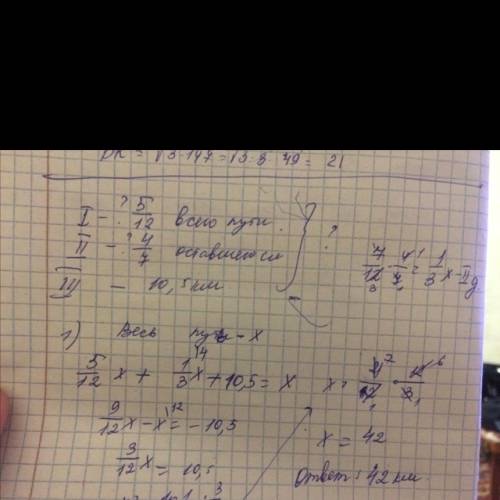 DK = √3·147 = √3·3·49 = 21
I - ? 5/12 всего пути
II - ? 4/7 оставшегося
III - 10,5 км
?
7/12 · 4/7 = 1/3 x - II д
1) Весь путь - x
5/12 x + 1/3 x + 10,5 = x
9/12 x - x = - 10,5
3/12 x = 10,5
x = 42
Ответ: 42 км